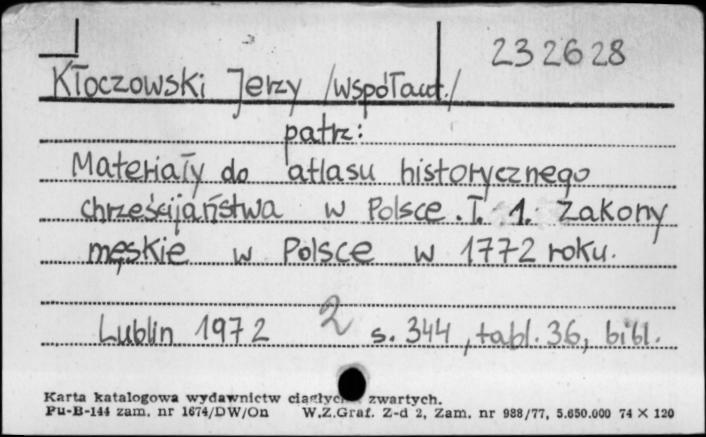 232628
Kłoczowski Jerzy /współaut./
patrz:
Materiały do atlasu historycznego
chrześcijaństwa w Polsce. T. 1. Zakony
męskie w Polsce w 1772 roku.
2
Lublin 1972 s. 344, tabl. 36, bibl.
Karta katalogowa wydawnictw zwartych.
Pu-B-144 zam. nr 1674/DW/On W.Z.Graf. Z-d 2, Zam. nr 988/77, 5.650.000 74 X 120